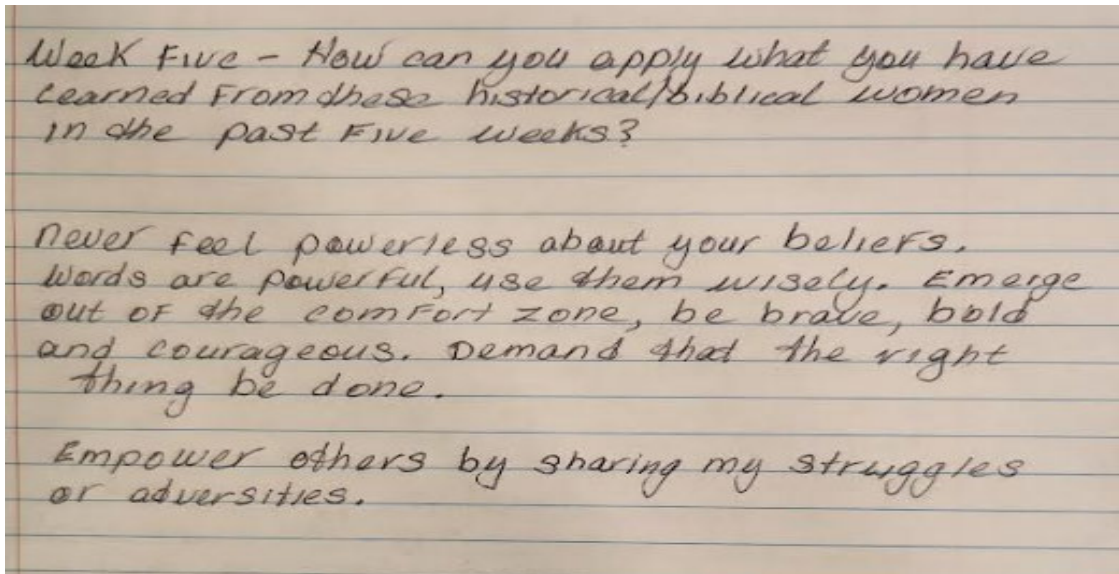 Week Five - How can you apply what you have
learned from these historical/biblical women
in the past five weeks?
Never feel powerless about your beliefs.
Words are powerful, use them wisely. Emerge
out of the comfort zone, be brave, bold
and courageous. Demand that the right
thing be done.
Empower others by sharing my struggles
or adversities.